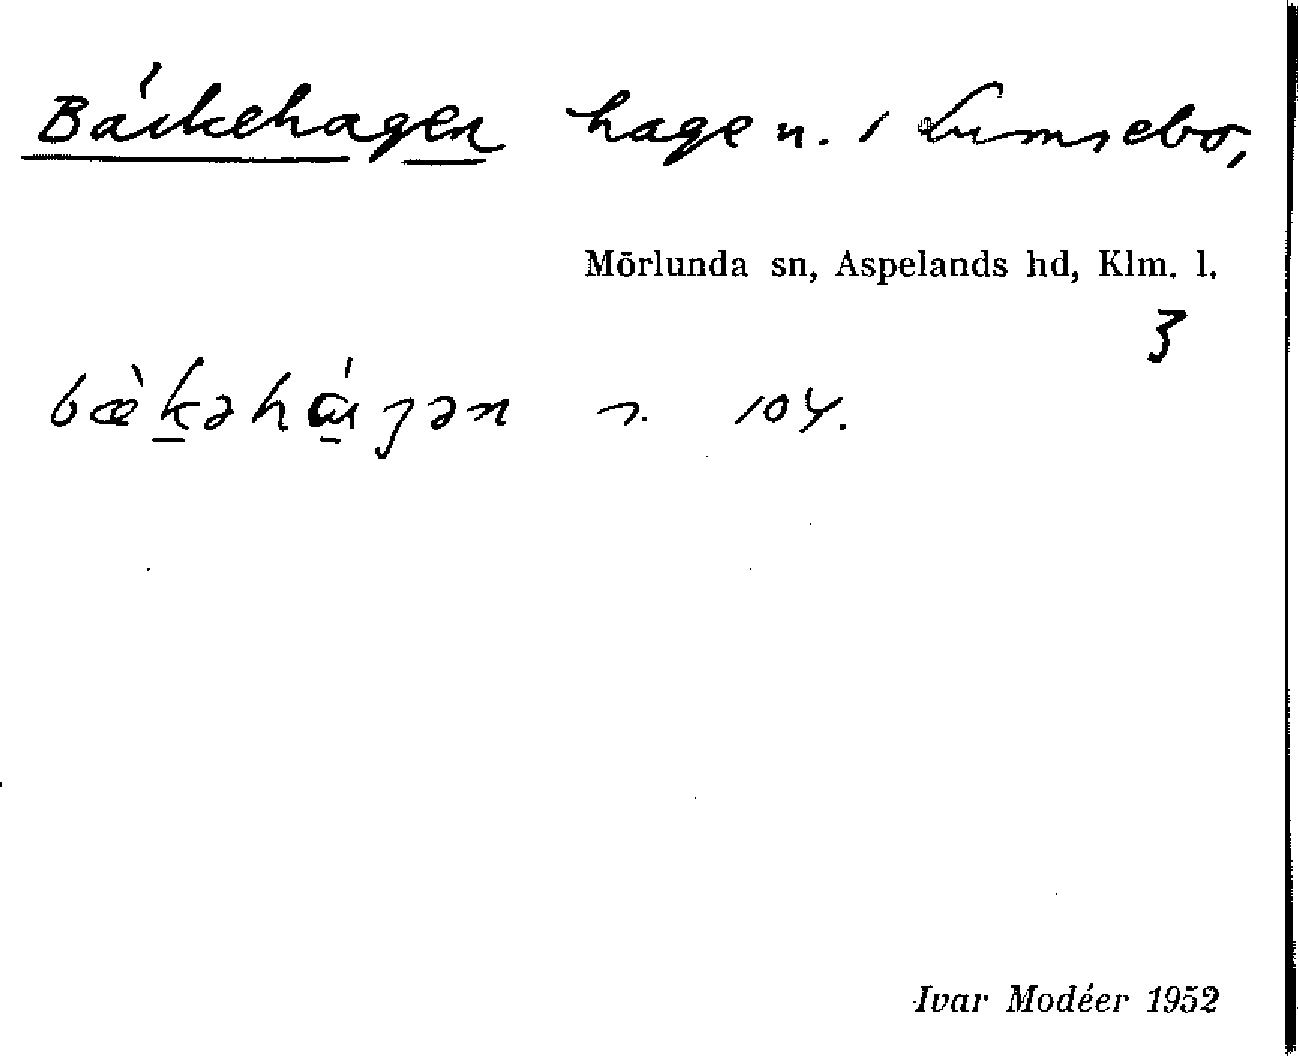 Bäckehagen hage n. i Lumsebo,
Mörlunda sn, Aspelands hd, Klm. l.
3
bæ̀k̠əhɑ̠́ɡən n. 104.
Ivar Modéer 1952